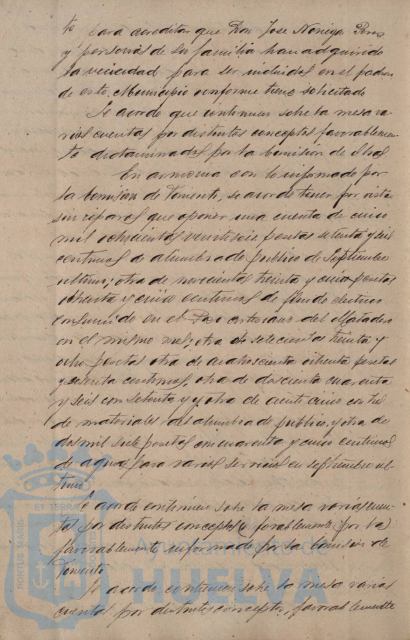 to para acreditar que Don Jose Noriega Peres
y personas de su familia han adquirido
la vecindad para ser incluidos en el padron
de este Municipio conforme tiene solicitado
Se acordó que continuen sobre la mesa va
rias cuentas por distintos conceptos favorablemen
te dictaminadas por la Comision de
En armonia con lo informado por
la Comision de Fomento, se acordó tener por vista
sin reparos que oponer una cuenta de cinco
mil ochocientas veintiseis pesetas setenta y seis
centimos de alumbrado publico de Septiembre
ultimo; otra de novecientas treinta y cinco pesetas
ochenta y cinco centimos de fluido electrico
consumido en el del Matadero
en el mismo mes; otra de setecientas treinta y
ocho pesetas otra de cuatrocientas ochenta pesetas
y setenta centimos, otra de doscientas cuarenta
y seis con setenta y y otra de ciento cinco con tres
de materiales del alumbrado publico, y otra de
dos mil siete pesetas con cuarenta y cinco centimos
de agua para varios servicios en Septiembre ul
timo
Se acordó continuen sobre la mesa varias cuen
tas por distintos conceptos (favorablemente por la)
favorablemente informadas por la Comision de
Fomento
Se acordó continuen sobre la mesa varias
cuentas por distintos conceptos, favorablemente
PORTUS MARIS
ET TERRAE
HUELVA